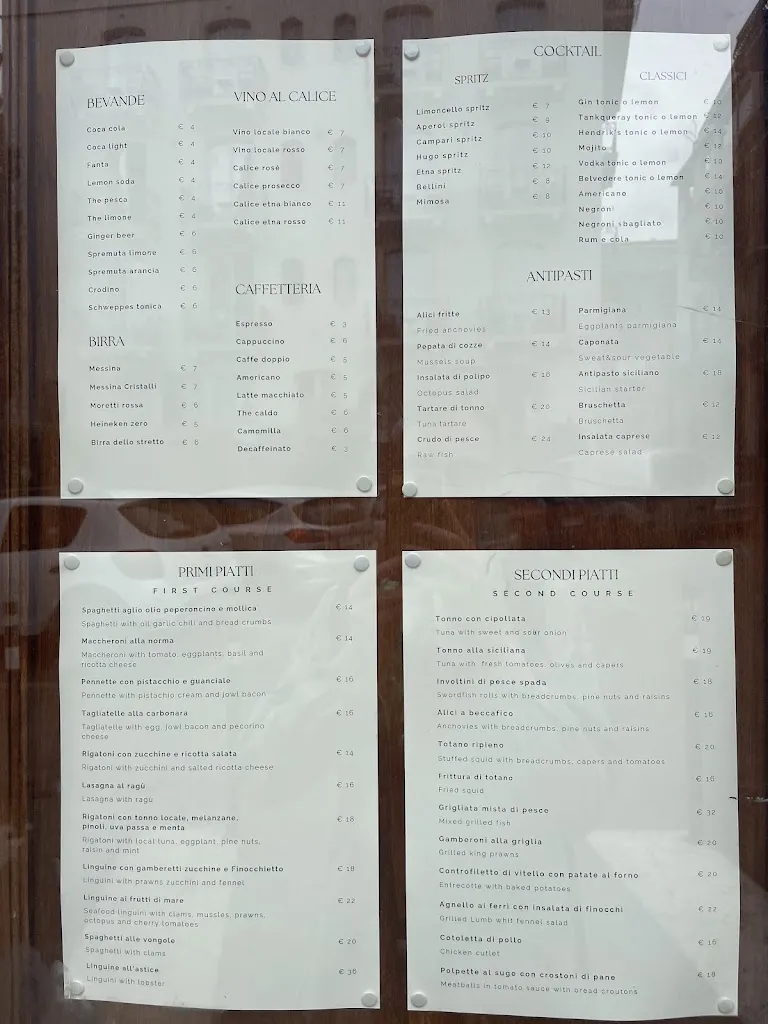 BEVANDE
Coca cola € 4
Coca light € 4
Fanta € 4
Lemon soda € 4
The pesca € 4
The limone € 4
Ginger beer € 6
Spremuta limone € 6
Spremuta arancia € 6
Crodino € 6
Schweppes tonica € 6
BIRRA
Messina € 7
Messina Cristalli € 7
Moretti rossa € 6
Heineken zero € 5
Birra dello stretto € 6
VINO AL CALICE
Vino locale bianco € 7
Vino locale rosso € 7
Calice rosé € 7
Calice prosecco € 7
Calice etna bianco € 11
Calice etna rosso € 11
CAFFETTERIA
Espresso € 3
Cappuccino € 6
Caffe doppio € 5
Americano € 5
Latte macchiato € 5
The caldo € 6
Camomilla € 6
Decaffeinato € 3
COCKTAIL
SPRITZ
Limoncello spritz € 7
Aperol spritz € 9
Campari spritz € 10
Hugo spritz € 10
Etna spritz € 12
Bellini € 8
Mimosa € 8
CLASSICI
Gin tonic o lemon € 10
Tankqueray tonic o lemon € 12
Hendrik's tonic o lemon € 14
Mojito € 12
Vodka tonic o lemon € 10
Belvedere tonic o lemon € 14
Americano € 10
Negroni € 10
Negroni sbagliato € 10
Rum e cola € 10
ANTIPASTI
Alici fritte € 13
Fried anchovies
Pepata di cozze € 14
Mussels soup
Insalata di polipo € 16
Octopus salad
Tartare di tonno € 20
Tuna tartare
Crudo di pesce € 24
Raw fish
Parmigiana € 14
Eggplants parmigiana
Caponata € 14
Sweat&sour vegetable
Antipasto siciliano € 18
Sicilian starter
Bruschetta € 12
Bruschetta
Insalata caprese € 12
Caprese salad
PRIMI PIATTI
FIRST COURSE
Spaghetti aglio olio peperoncino e mollica € 14
Spaghetti with oil garlic chili and bread crumbs
Maccheroni alla norma € 14
Maccheroni with tomato, eggplants, basil and
ricotta cheese
Pennette con pistacchio e guanciale € 16
Pennette with pistachio cream and jowl bacon
Tagliatelle alla carbonara € 16
Tagliatelle with egg, jowl bacon and pecorino
cheese
Rigatoni con zucchine e ricotta salata € 14
Rigatoni with zucchini and salted ricotta cheese
Lasagna al ragù € 16
Lasagna with ragù
Rigatoni con tonno locale, melanzane,
pinoli, uva passa e menta € 18
Rigatoni with local tuna, eggplant, pine nuts,
raisin and mint
Linguine con gamberetti zucchine e Finocchietto € 18
Linguini with prawns zucchini and fennel
Linguine ai frutti di mare € 22
Seafood linguini with clams, mussles, prawns,
octopus and cherry tomatoes
Spaghetti alle vongole € 20
Spaghetti with clams
Linguine all'astice € 36
Linguini with lobster
SECONDI PIATTI
SECOND COURSE
Tonno con cipollata € 19
Tuna with sweet and sour onion
Tonno alla siciliana € 19
Tuna with fresh tomatoes, olives and capers
Involtini di pesce spada € 18
Swordfish rolls with breadcrumbs, pine nuts and raisins
Alici a beccafico € 16
Anchovies with breadcrumbs, pine nuts and raisins
Totano ripieno € 20
Stuffed squid with breadcrumbs, capers and tomatoes
Frittura di totano € 16
Fried squid
Grigliata mista di pesce € 32
Mixed grilled fish
Gamberoni alla griglia € 20
Grilled king prawns
Controfiletto di vitello con patate al forno € 20
Entrecotte with baked potatoes
Agnello ai ferri con insalata di finocchi € 22
Grilled Lumb whit fennel salad
Cotoletta di pollo € 16
Chicken cutlet
Polpette al sugo con crostoni di pane € 18
Meatballs in tomato sauce with bread croutons